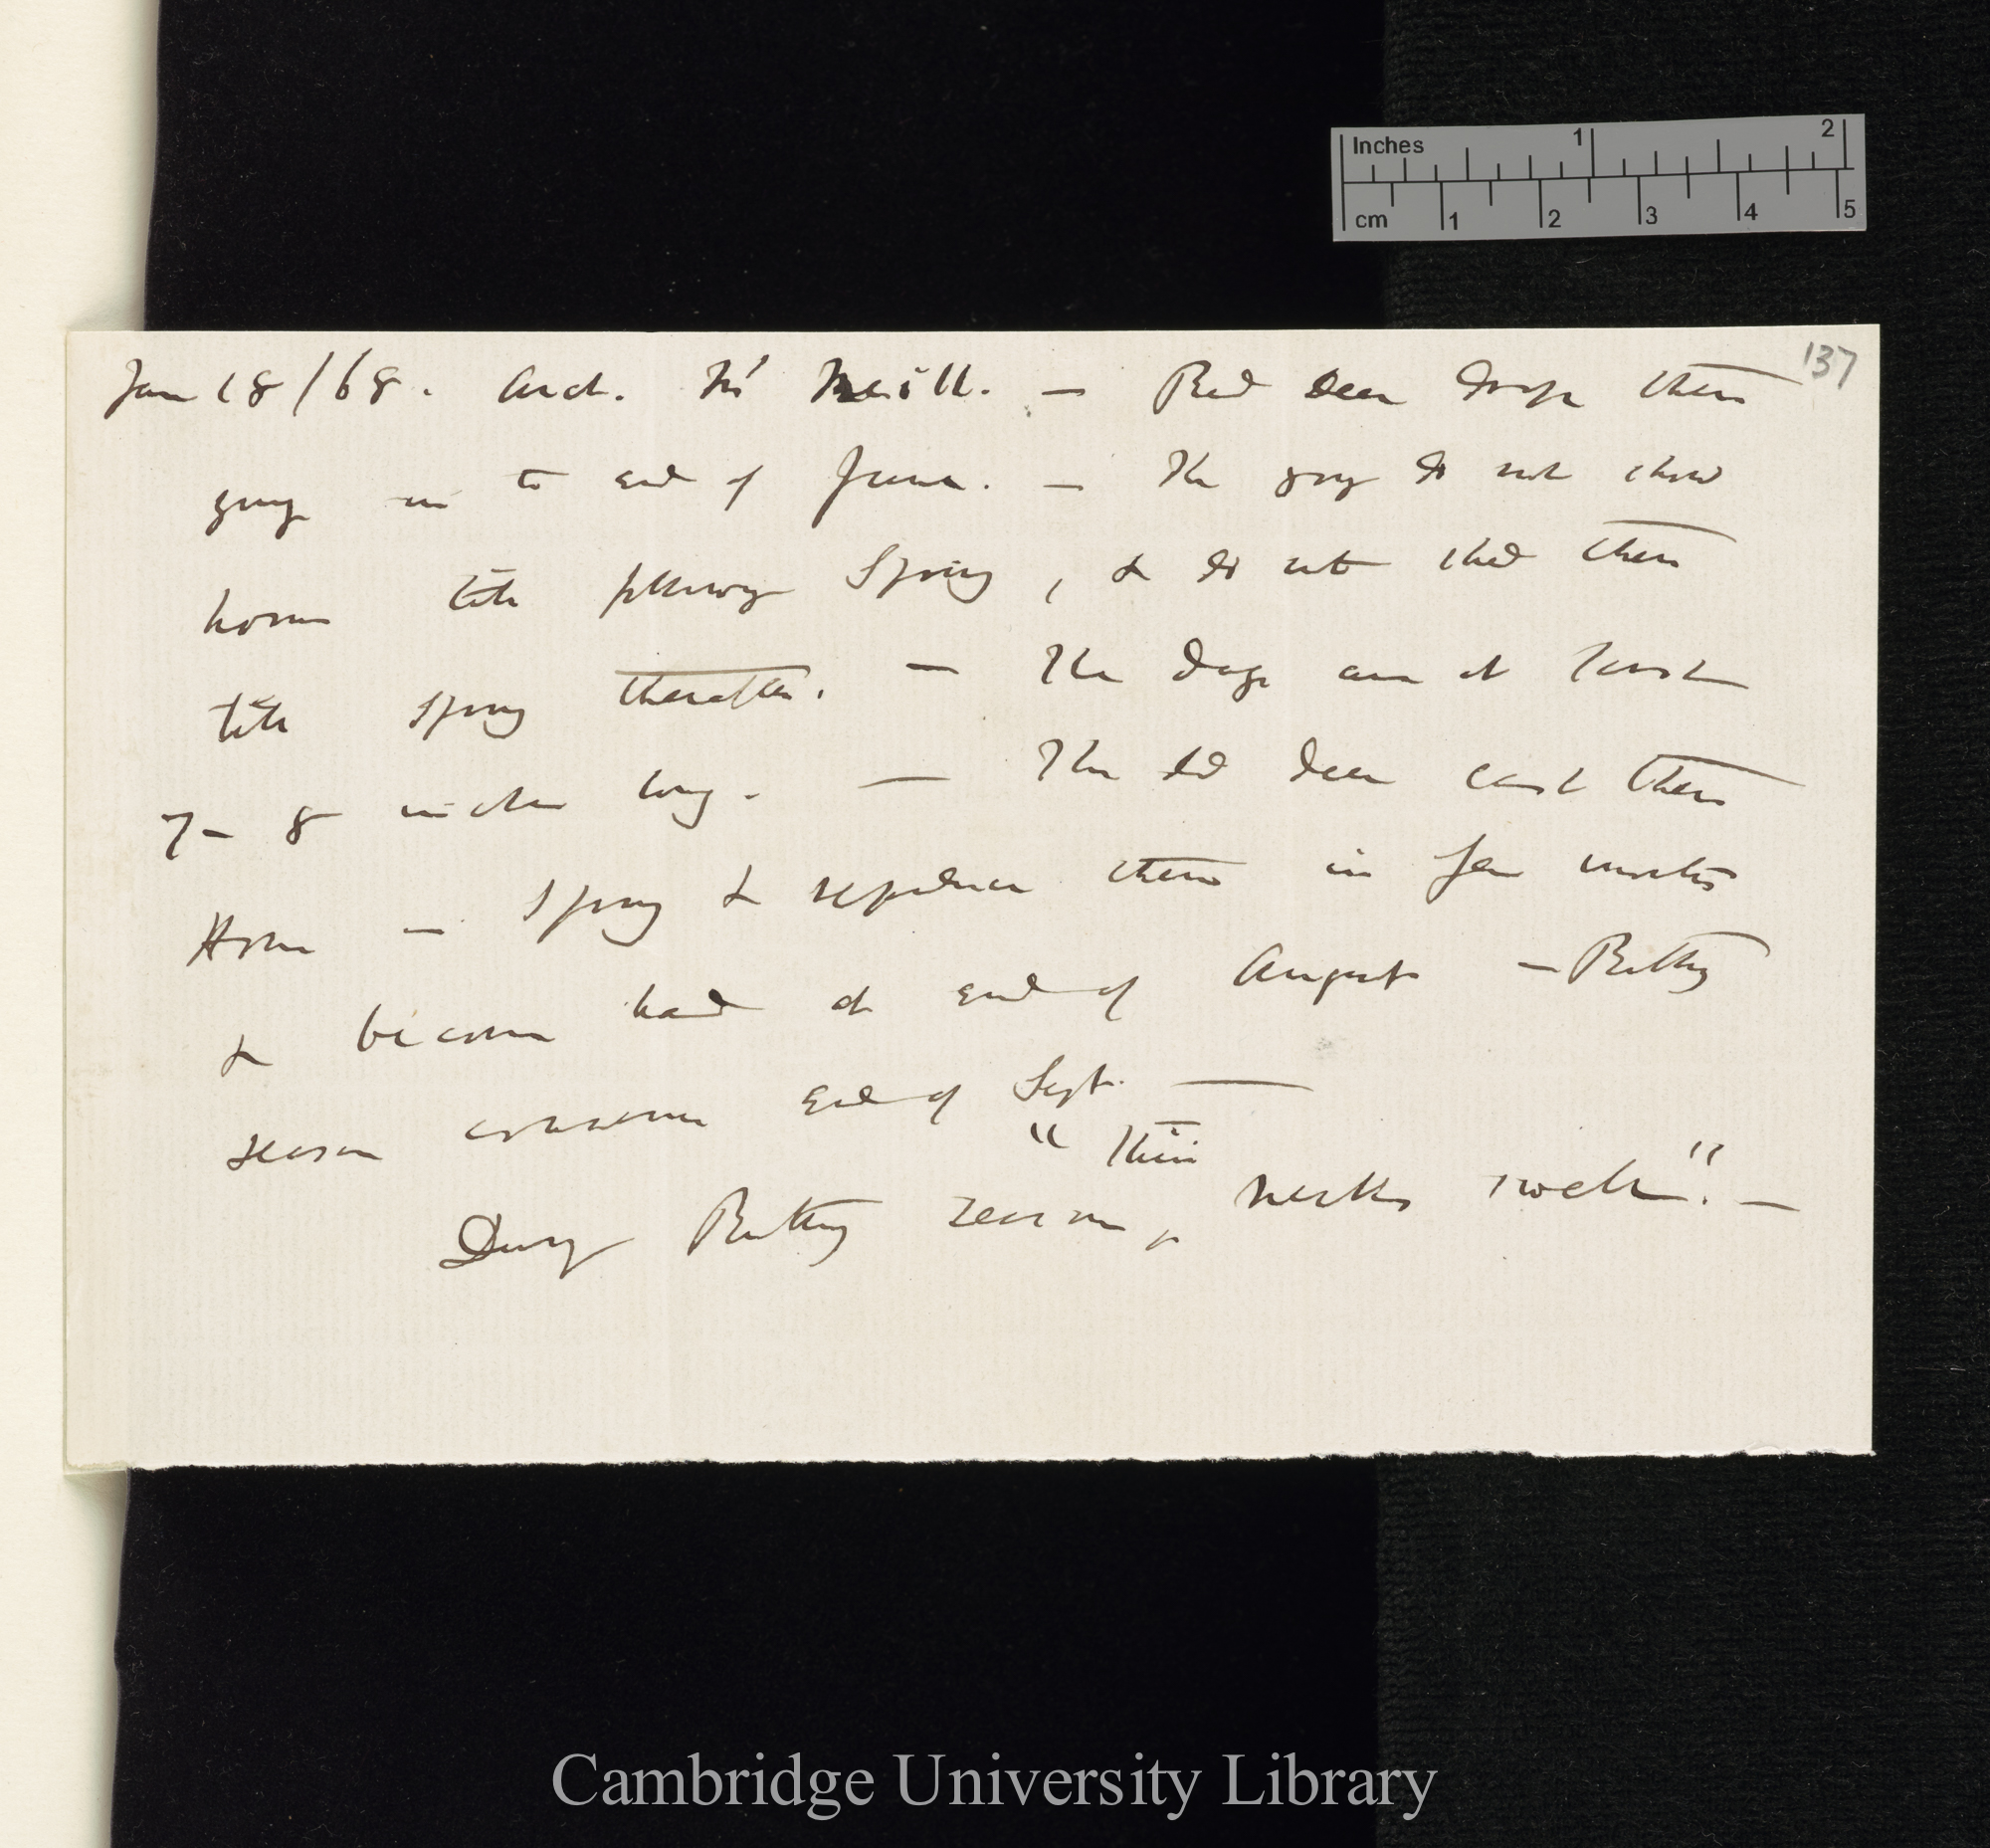 Inches 1 2
cm 1 2 3 4 5
137
Jan 18/68. Arch. Mc Neill. — Red deer drop their
young in to end of June. — The young do not show
horns till following Spring, & do not shed them
till spring thereafter. — The dags are at least
7–8 inches long. — The old deer cast their
Horns – spring & reproduce them in few months
& become hard at end of August – Rutting
season commences end of Sept. —
"Their
During Rutting season, necks swell". —
Cambridge University Library